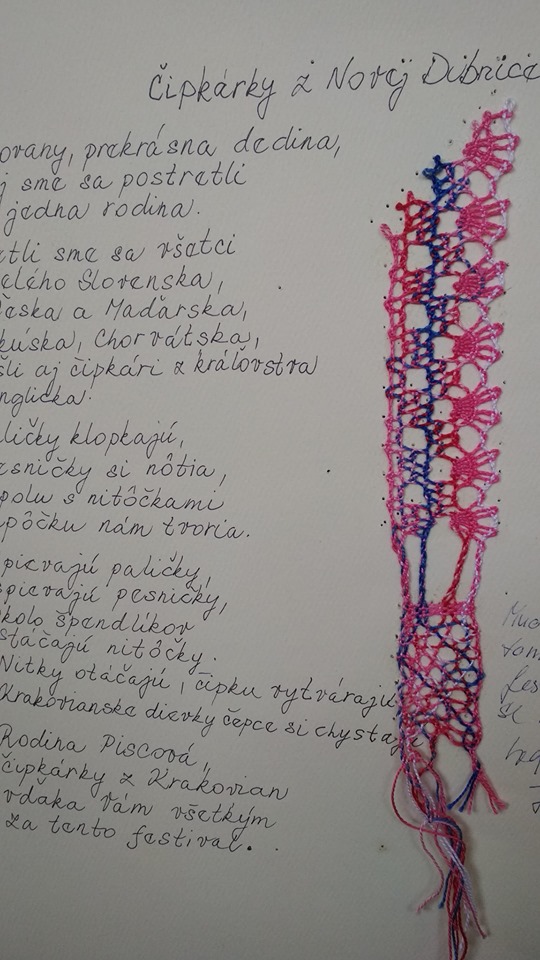 Čipkárky z Novej Dubnice
ovany, prekrásna dedina,
j sme sa postretli
jedna rodina.
etli sme sa všetci
elého Slovenska,
Česka a Maďarska,
kúska, Chorvátska,
šli aj čipkári z kráľovstva
nglicka.
ličky klopkajú,
esničky si nôtia,
polu s nitôčkami
pôčku nám tvoria.
pievajú paličky,
spievajú pesničky,
okolo špendlíkov
stáčajú nitôčky.
Nitky otáčajú, čipku vytvárajú
Krakovianske dievky čepce si chystajú
Rodina Piscová,
čipkárky z Krakovian
vďaka Vám všetkým
za tento festival.